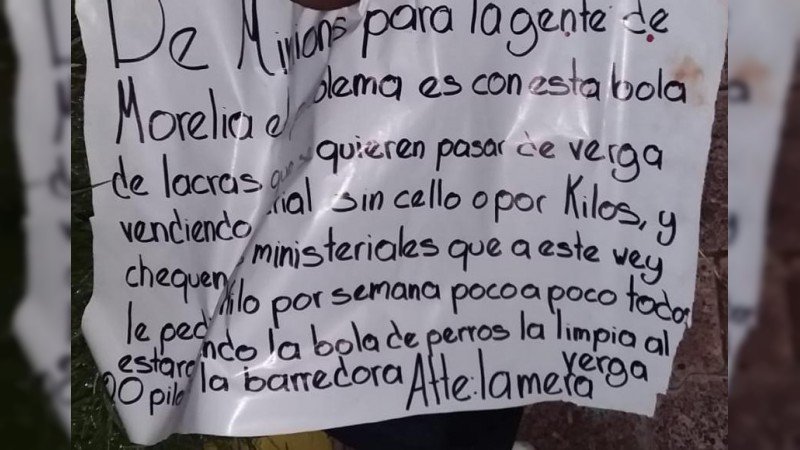 De Minions para la gente de
Morelia el blema es con esta bola
de lacras que quieren pasar de verga
vendiendo rial sin cello o por Kilos, y
chequen ministeriales que a este vey
le ped kilo por semana poco a poco todos
estare ndo la bola de perros la limpia al
100 pilo la barredora Atte: la mera verga